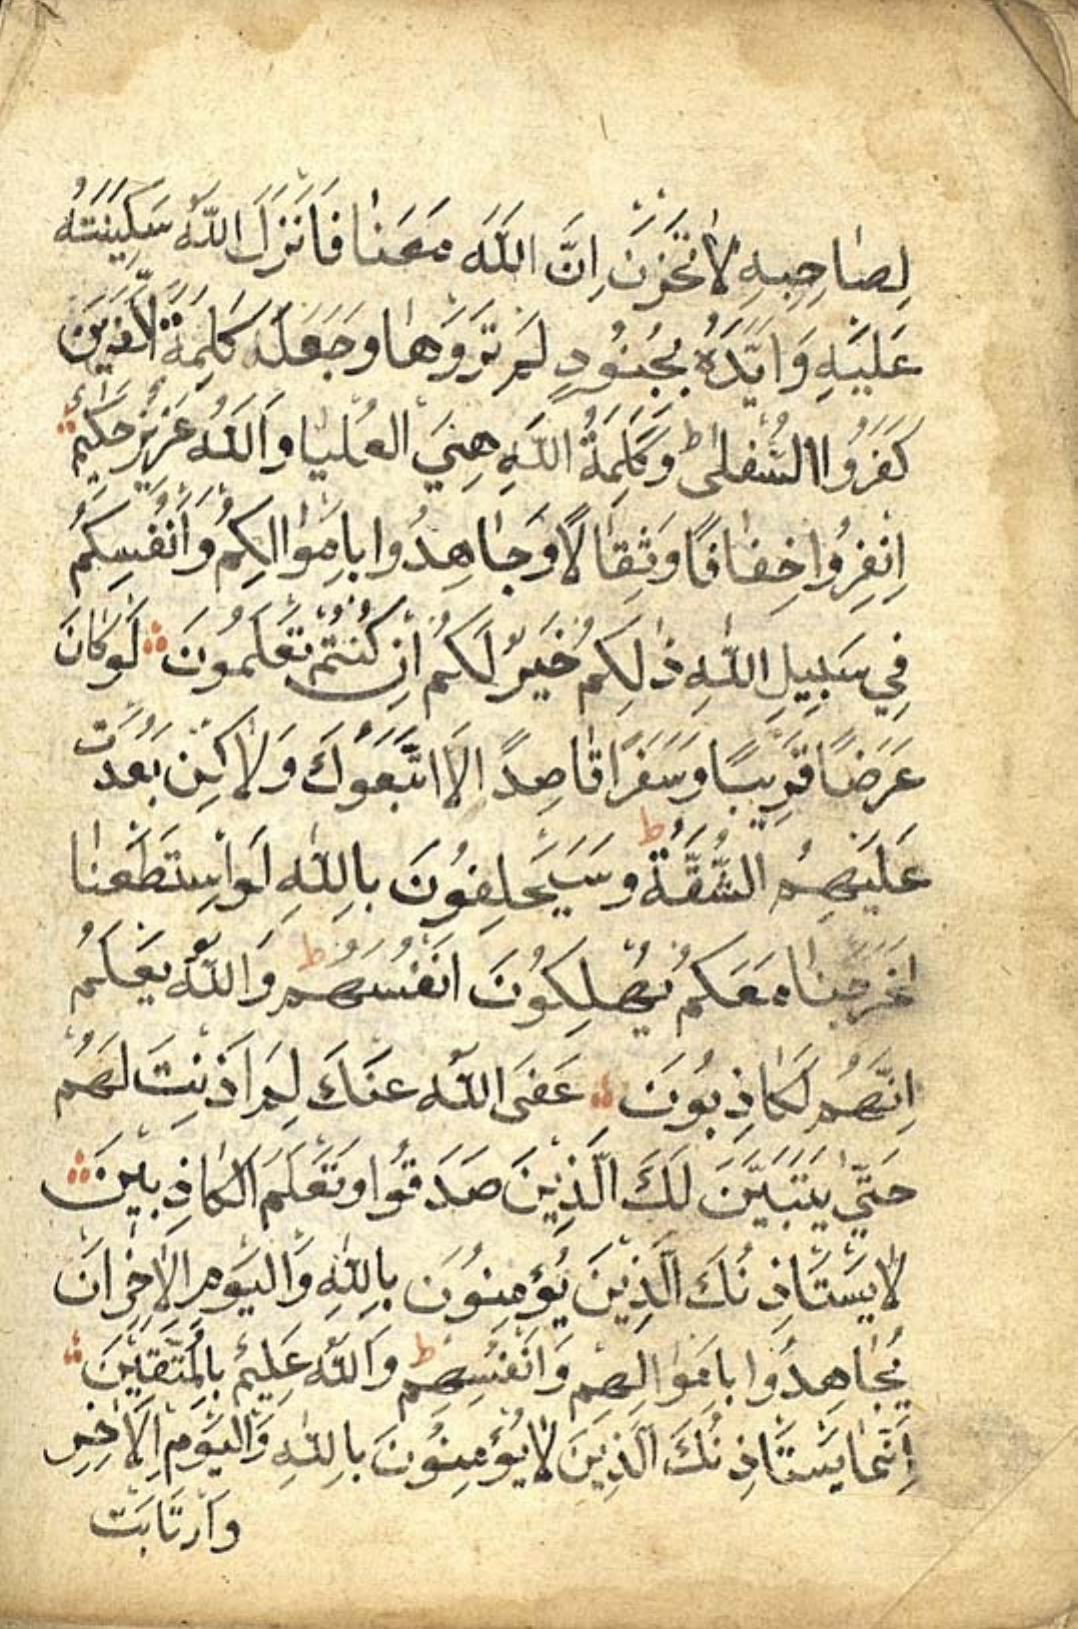 لِصَاحِبِهِ لَا تَحْزَنْ اِنَّ اللّٰهَ مَعَنَا فَاَنْزَلَ اللّٰهُ سَكِينَتَهُ
عَلَيْهِ وَاَيَّدَهُ بِجُنُودٍ لَمْ تَرَوْهَا وَجَعَلَ كَلِمَةَ الَّذِينَ
كَفَرُوا السُّفْلٰى ط وَكَلِمَةُ اللّٰهِ هِيَ الْعُلْيَا وَاللّٰهُ عَزِيزٌ حَكِيمٌ
اِنْفِرُوا خِفَافًا وَثِقَالًا وَجَاهِدُوا بِاَمْوَالِكُمْ وَاَنْفُسِكُمْ
فِي سَبِيلِ اللّٰهِ ذٰلِكُمْ خَيْرٌ لَكُمْ اِنْ كُنْتُمْ تَعْلَمُونَ لَوْ كَانَ
عَرَضًا قَرِيبًا وَسَفَرًا قَاصِدًا لَا اتَّبَعُوكَ وَلَاكِنْ بَعُدَتْ
عَلَيْهِمُ الشُّقَّةُ ط وَسَيَحْلِفُونَ بِاللّٰهِ لَوِ اسْتَطَعْنَا
لَخَرَجْنَا مَعَكُمْ يُهْلِكُونَ اَنْفُسَهُمْ ط وَاللّٰهُ يَعْلَمُ
اِنَّهُمْ لَكَاذِبُونَ عَفَى اللّٰهُ عَنْكَ لِمَ اَذِنْتَ لَهُمْ
حَتّٰي يَتَبَيَّنَ لَكَ الَّذِينَ صَدَقُوا وَتَعْلَمَ الْكَاذِبِينَ
لَا يَسْتَاْذِنُكَ الَّذِينَ يُؤْمِنُونَ بِاللّٰهِ وَالْيَوْمِ الْاٰخِرِ اَنْ
يُجَاهِدُوا بِاَمْوَالِهِمْ وَاَنْفُسِهِمْ ط وَاللّٰهُ عَلِيمٌ بِالْمُتَّقِينَ
اِنَّمَا يَسْتَاْذِنُكَ الَّذِينَ لَا يُؤْمِنُونَ بِاللّٰهِ وَالْيَوْمِ الْاٰخِرِ
وَارْتَابَتْ